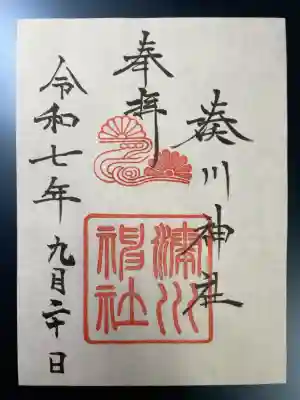 湊川神社
奉拝
湊川
神社
令和七年九月二十日